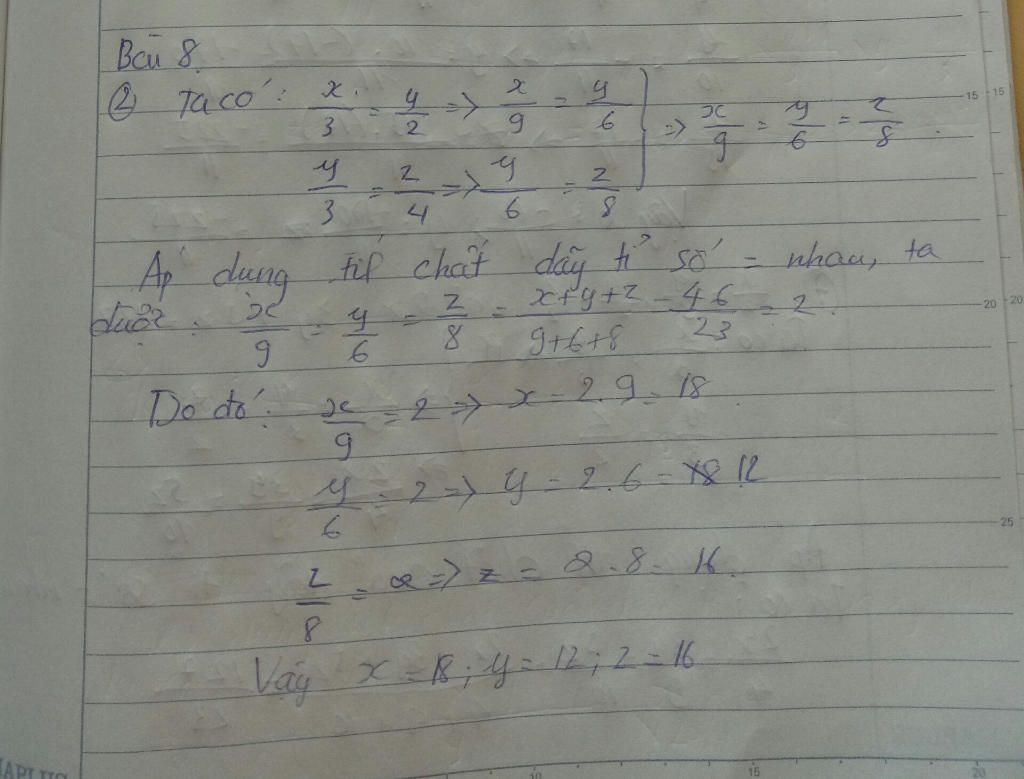 Bài 8.
② Ta có: x/3 = y/2 => x/9 = y/6 } => x/9 = y/6 = z/8.
y/3 = z/4 => y/6 = z/8
Áp dụng t/c chất dãy tỉ số = nhau, ta
được: x/9 = y/6 = z/8 = x+y+z/9+6+8 = 46/23 = 2.
Do đó: x/9 = 2 => x = 2.9 = 18.
y/6 = 2 => y = 2.6 = 12
z/8 = 2 => z = 2.8 = 16.
Vậy x = 18; y = 12; z = 16
15 15
20 20
25
10 15 20